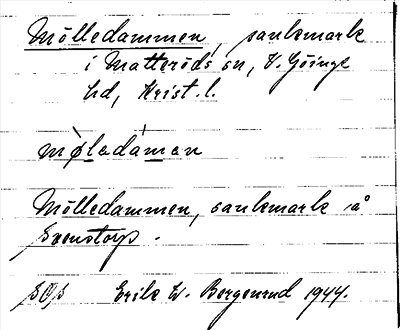 Mölledammen, sankmark
i Matteröds sn, V. Göinge
hd, Krist. l.
mø̀ledámən
Mölledammen, sankmark å
Svenstorp.
Erik W. Bergenrud 1944.